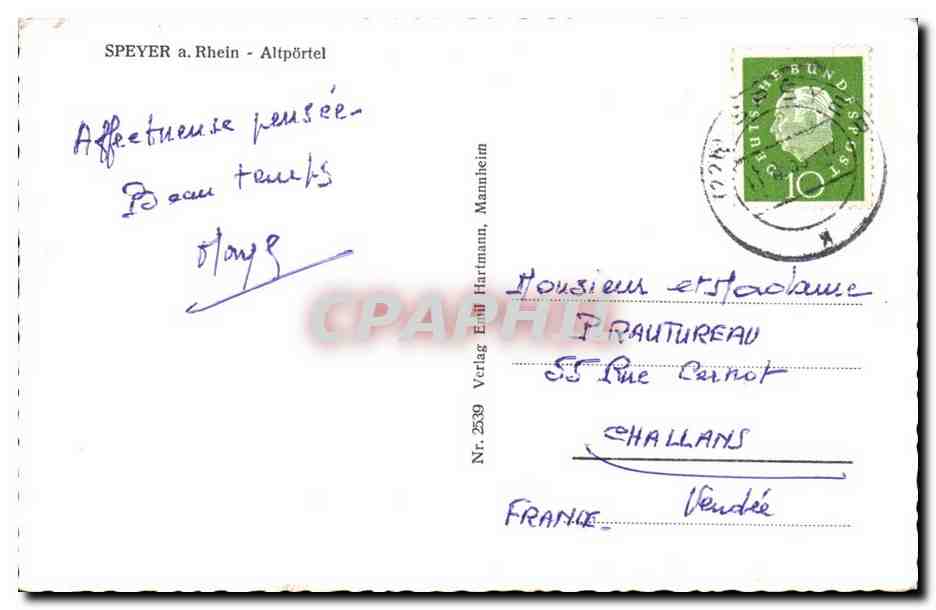 SPEYER a. Rhein - Altpörtel
Affectueuse pensée.
Beau temps
Nr. 2539 Verlag Emil Hartmann, Mannheim
DEUTSCHE BUNDESPOST
10
(22b)
Monsieur et Madame
PRAUTUREAU
55 Rue Carnot
CHALLANS
Vendée
FRANCE
CPAPHIL